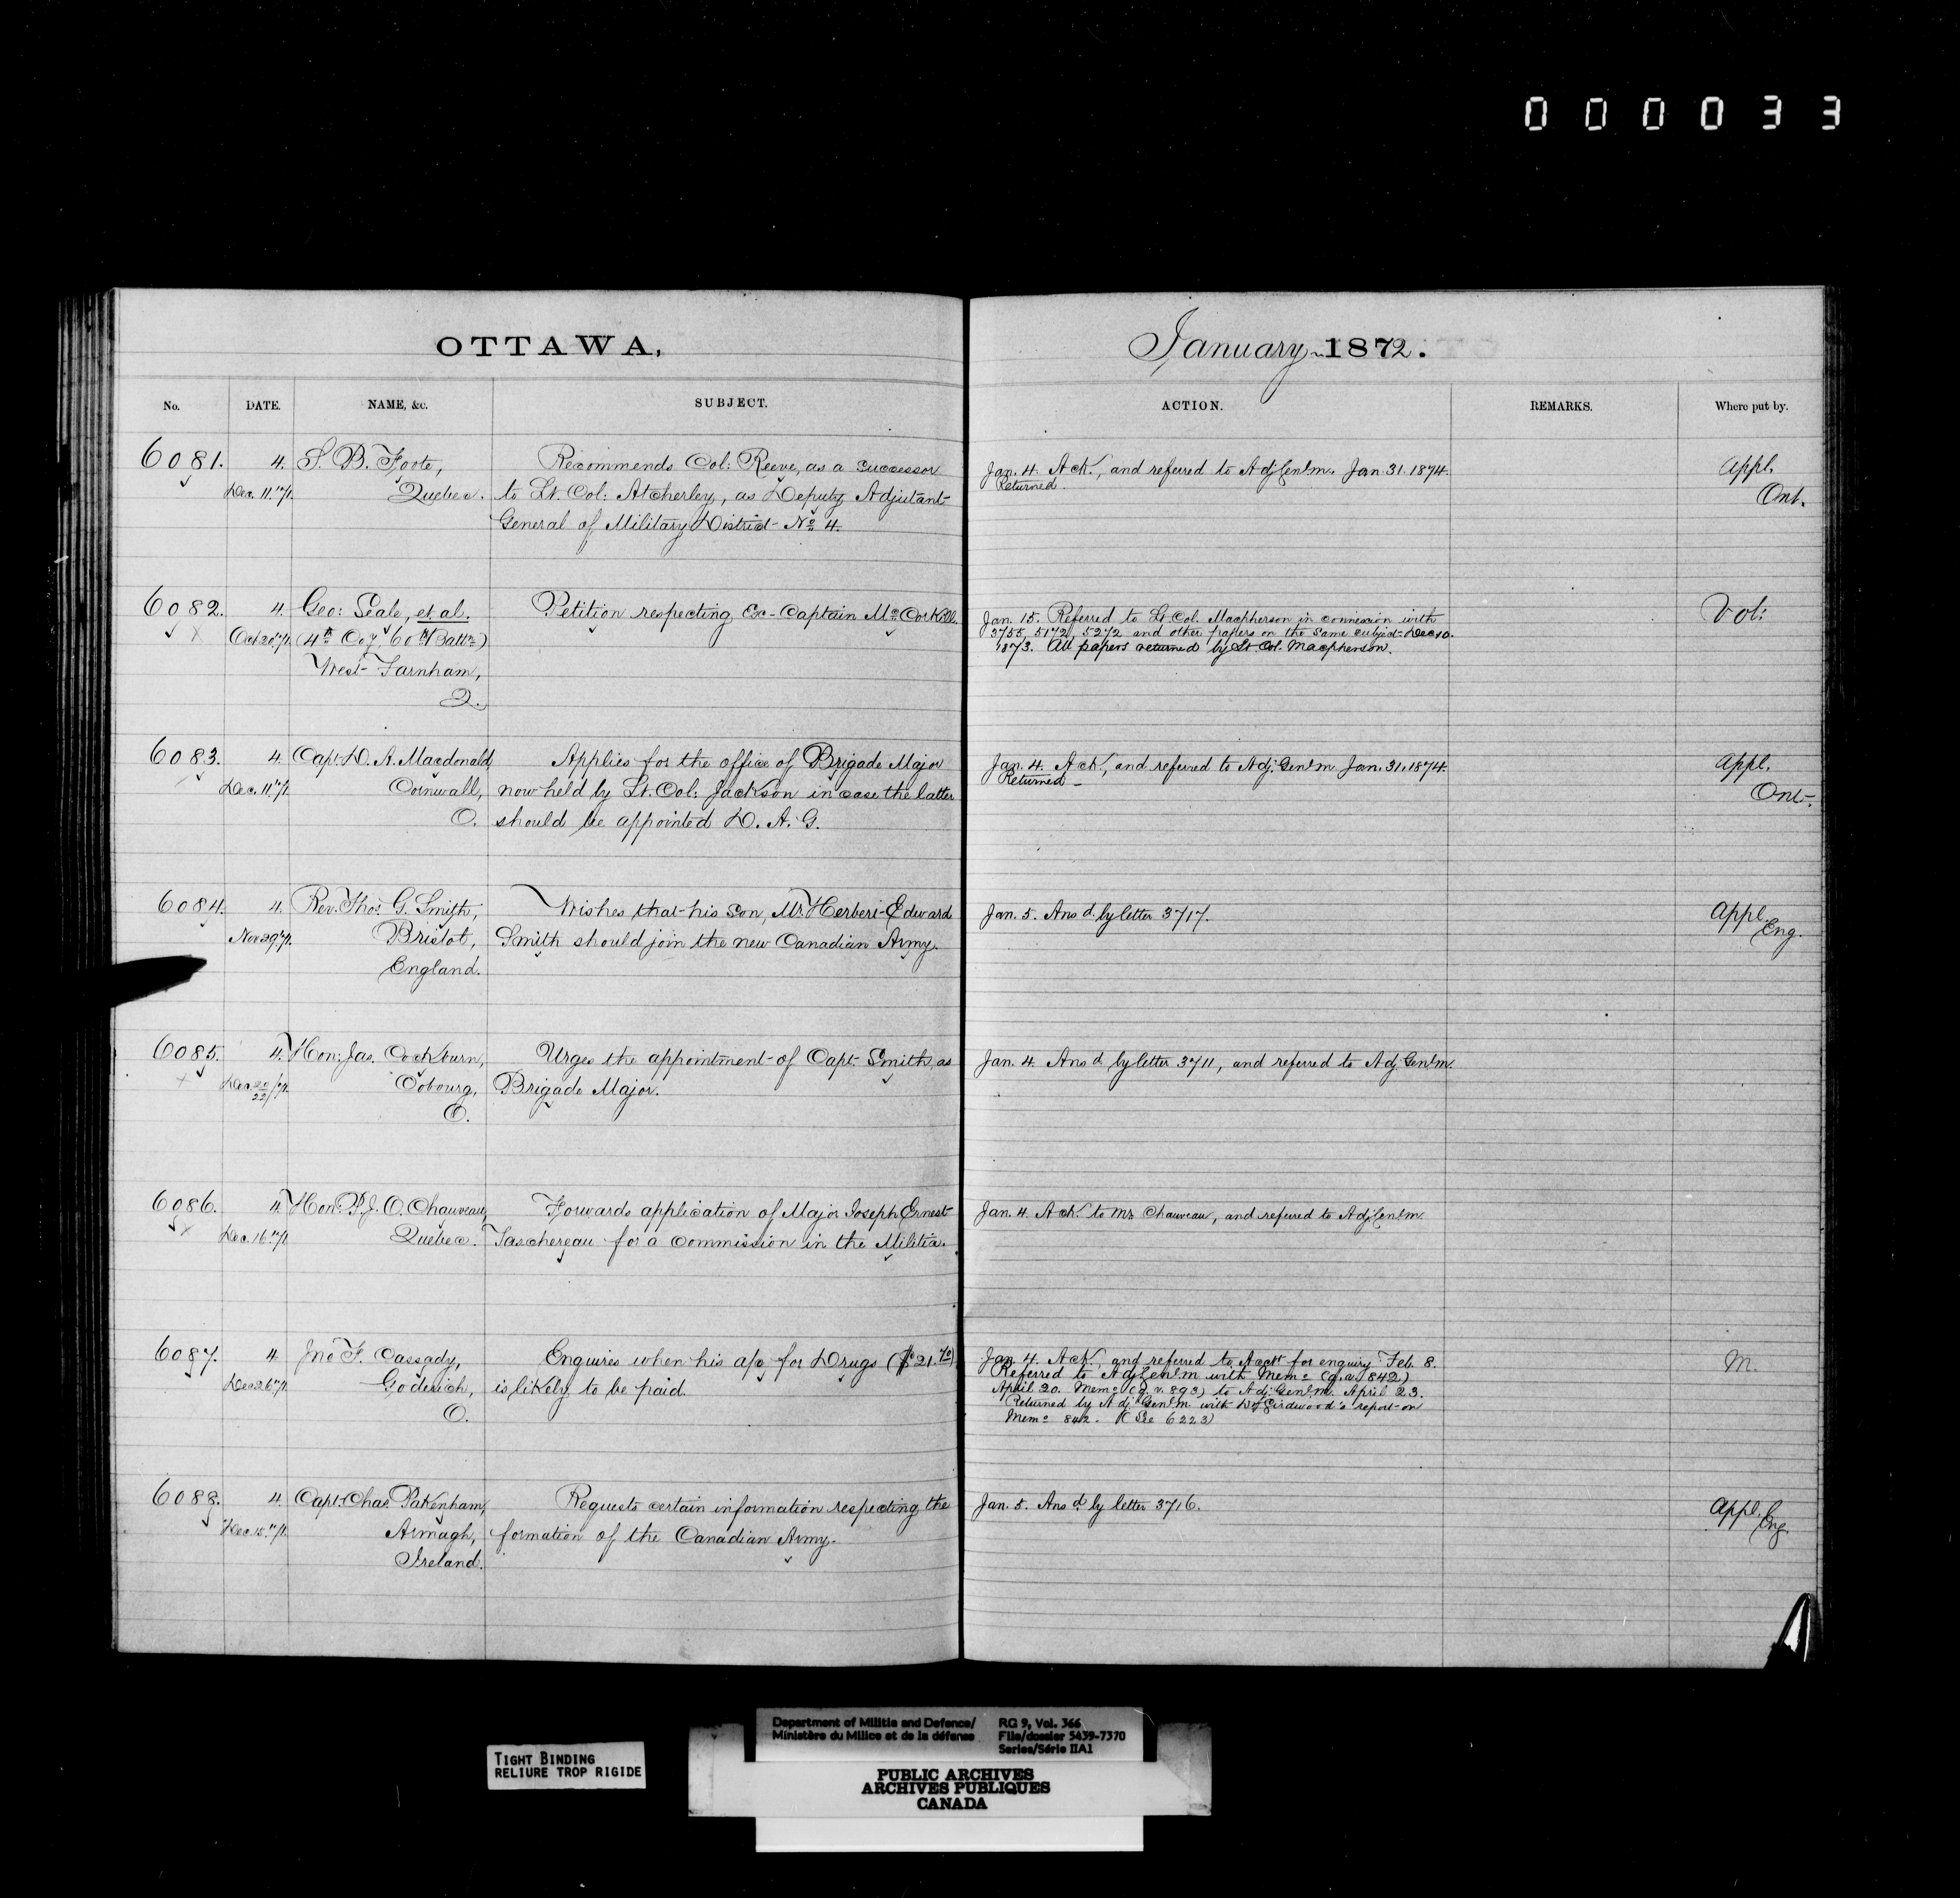 000033
OTTAWA,
January 1872.
No. DATE. NAME, &c. SUBJECT. ACTION. REMARKS. Where put by.
6081. 4. S. B. Foote, Recommends Col: Reeve, as a successor
Dec. 11."71. Quebec. to Lt. Col: Atcherley, as Deputy Adjutant
General of Military District No 4.
Jan. 4. Ack., and referred to Adj. Genl m. Jan. 31. 1874.
Returned.
Appl.
Ont.
6082. 4. Geo: Seale, et al. Petition respecting Ex-Captain McCorkill.
Oct 20"71. (4th Coy. 60th Battn)
West Farnham,
Q.
Jan. 15. Referred to Lt. Col. Macpherson in connexion with
3755, 5172, 5272 and other papers on the same subject. Dec 10.
1873. All papers returned by Lt. Col. Macpherson.
Vol:
6083. 4. Capt. D. A. Macdonald, Applies for the office of Brigade Major
Dec. 11."71. Cornwall, now held by Lt. Col: Jackson in case the latter
O. should be appointed D. A. G.
Jan. 4. Ack., and referred to Adj. Genl m. Jan. 31. 1874.
Returned
Appl.
Ont.
6084. 4. Rev. Thos. G. Smith, Wishes that his son, Mr. Herbert Edward
Nov 29"71. Bristol, Smith should join the new Canadian Army.
England.
Jan. 5. Ansd. by letter 3717.
Appl.
Eng.
6085. 4. Hon: Jas. Cockburn, Urges the appointment of Capt. Smith, as
Dec 20/22/71. Cobourg, Brigade Major.
O.
Jan. 4. Ansd by letter 3711, and referred to Adj. Genl m.
6086. 4. Hon: P. J. O. Chauveau, Forwards application of Major Joseph Ernest
Dec. 16."71. Quebec. Taschereau for a commission in the Militia.
Jan. 4. Ack. to Mr. Chauveau, and referred to Adj. Genl m.
6087. 4. Jno F. Cassady, Enquires when his a/c for Drugs ($21.70)
Dec 26"71. Goderich, is likely to be paid.
O.
Jan. 4. Ack., and referred to Acct for enquiry. Feb. 8.
Referred to Adj. Genl m with Memo (q. v. 842)
April 20. Memo (q. v. 893) to Adj. Genl m. April 23.
Returned by Adj. Genl m. with Dr. Girdwood's report on
Memo 842. (See 6223)
M.
6088. 4. Capt. Chas. Pakenham, Requests certain information respecting the
Dec. 15."71. Armagh, formation of the Canadian Army.
Ireland.
Jan. 5. Ansd by letter 3716.
Appl.
Eng.
TIGHT BINDING
RELIURE TROP RIGIDE
Department of Militia and Defence/
Ministère du Milice et de la défense
RG 9, Vol. 366
File/dossier 5439-7370
Series/Série IIA1
PUBLIC ARCHIVES
ARCHIVES PUBLIQUES
CANADA